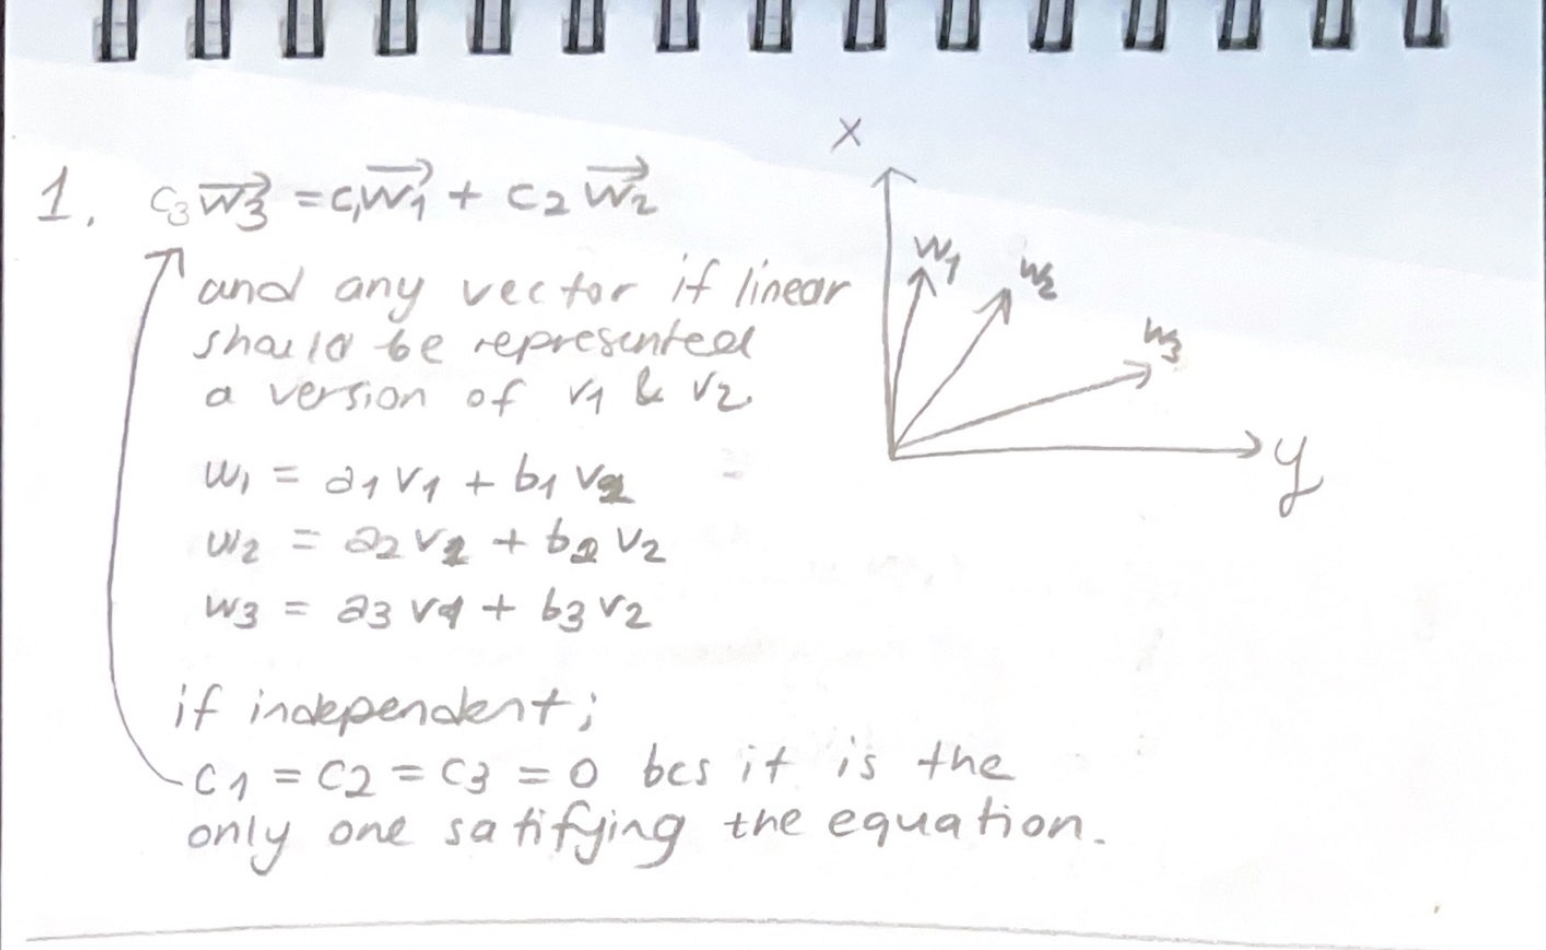 1. c3 w3 = c1 w1 + c2 w2
and any vector if linear
should be represented
a version of v1 & v2.
w1 = a1 v1 + b1 v2
w2 = a2 v1 + b2 v2
w3 = a3 v1 + b3 v2
if independent;
c1 = c2 = c3 = 0 bcs it is the
only one satifying the equation.
x
w1
w2
w3
y